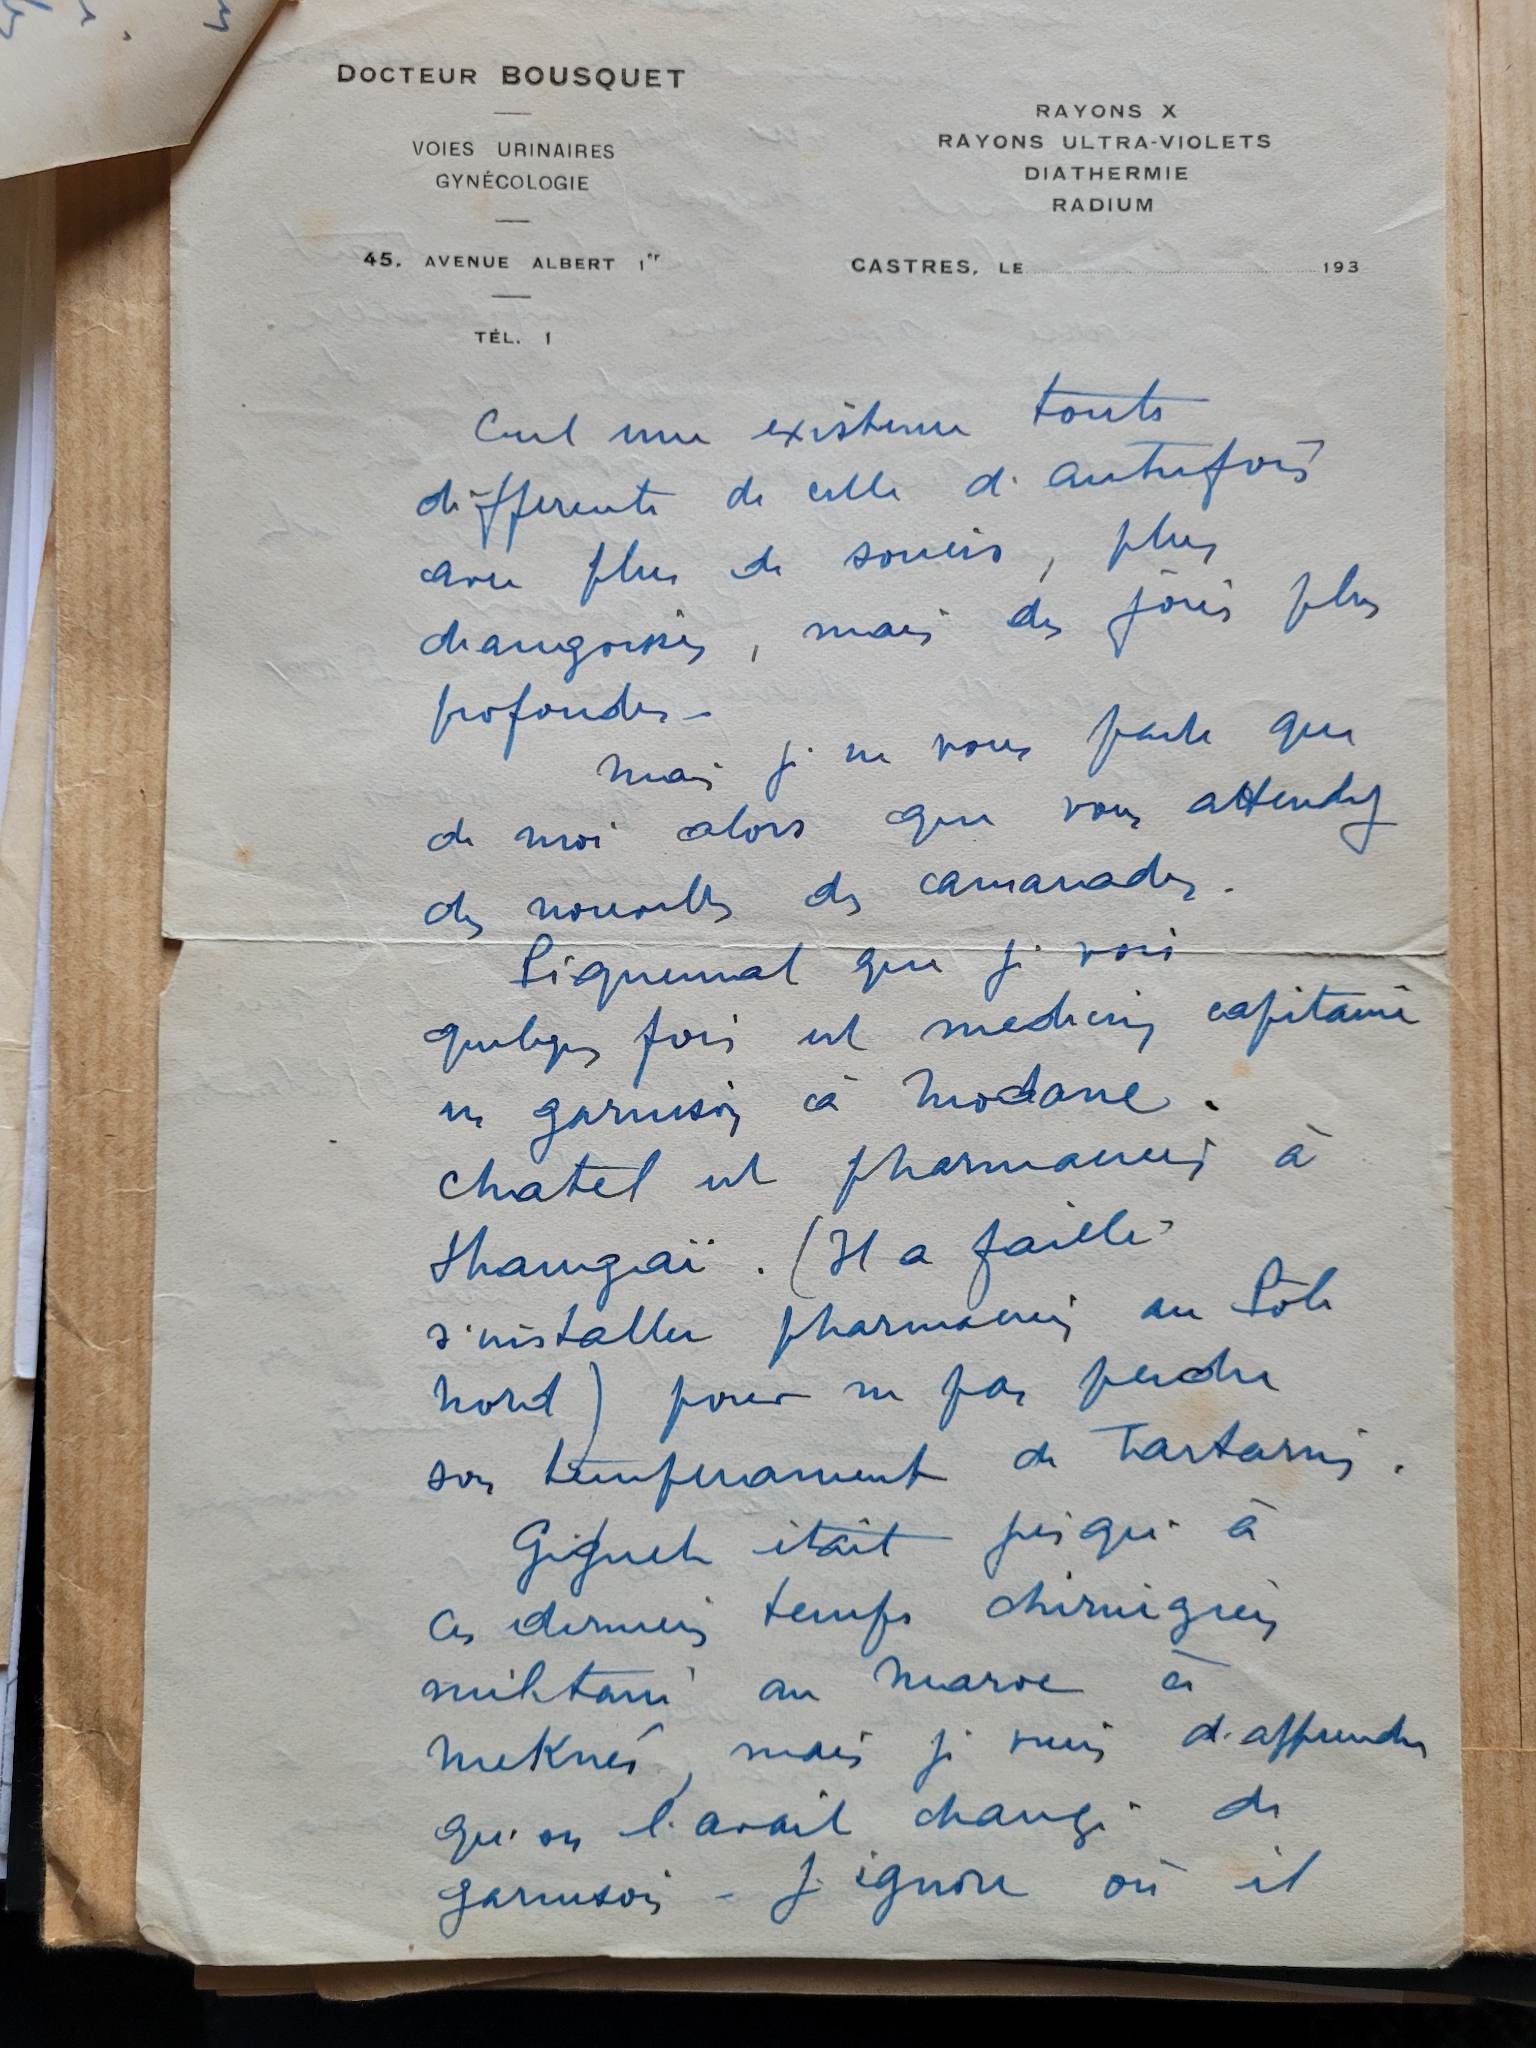 DOCTEUR BOUSQUET
VOIES URINAIRES
GYNÉCOLOGIE
45. AVENUE ALBERT 1er
TÉL. 1
RAYONS X
RAYONS ULTRA-VIOLETS
DIATHERMIE
RADIUM
CASTRES, LE 193
C'est une existence toute
differente de celle d'autrefois
avec plus de soucis, plus
d'angoisses, mais des joies plus
profondes -
Mais je ne vous parle que
de moi alors que vous attendez
des nouvelles des camarades.
Piquemal que je vois
quelques fois est medecin capitaine
en garnison à Modane.
Chatel est pharmacien à
Shangaï. (Il a failli
s'installer pharmacien au Pôle
Nord) pour ne pas perdre
son temperament de Tartarin.
était jusqu'à
ces derniers temps chirurgien
militaire au Maroc à
Meknés, mais je viens d'apprendre
qu'on l'avait changé de
garnison - J'ignore où il